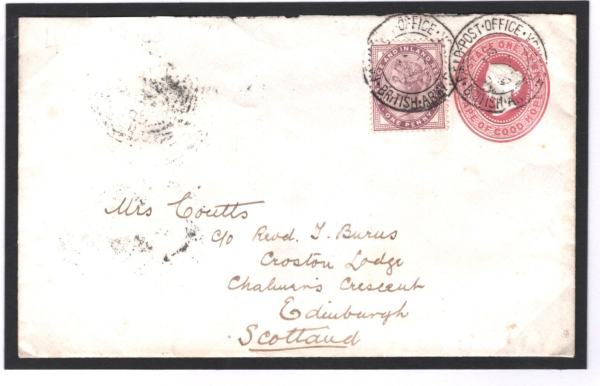 FIELD·POST·OFFICE
BRITISH·ARMY
POST·OFFICE
BRITISH·A
AND INLAND
ONE PENNY
ONE
CAPE OF GOOD HOPE
Mrs Coutts
c/o Revd. J. Burns
Croston Lodge
Chalmer's Crescent
Edinburgh
Scotland